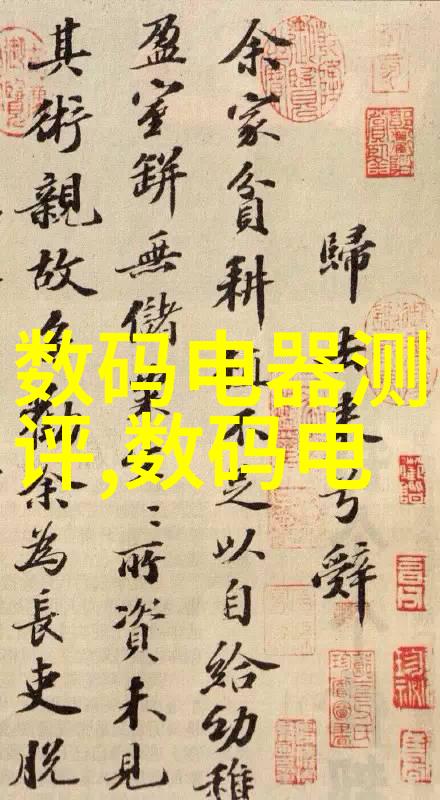 数码电器测
评,数码电
歸去来兮辭
余家貧耕植不足以自給幼稚
盈室缾無儲粟生〻所資未見
其術親故多勸余為長吏脱